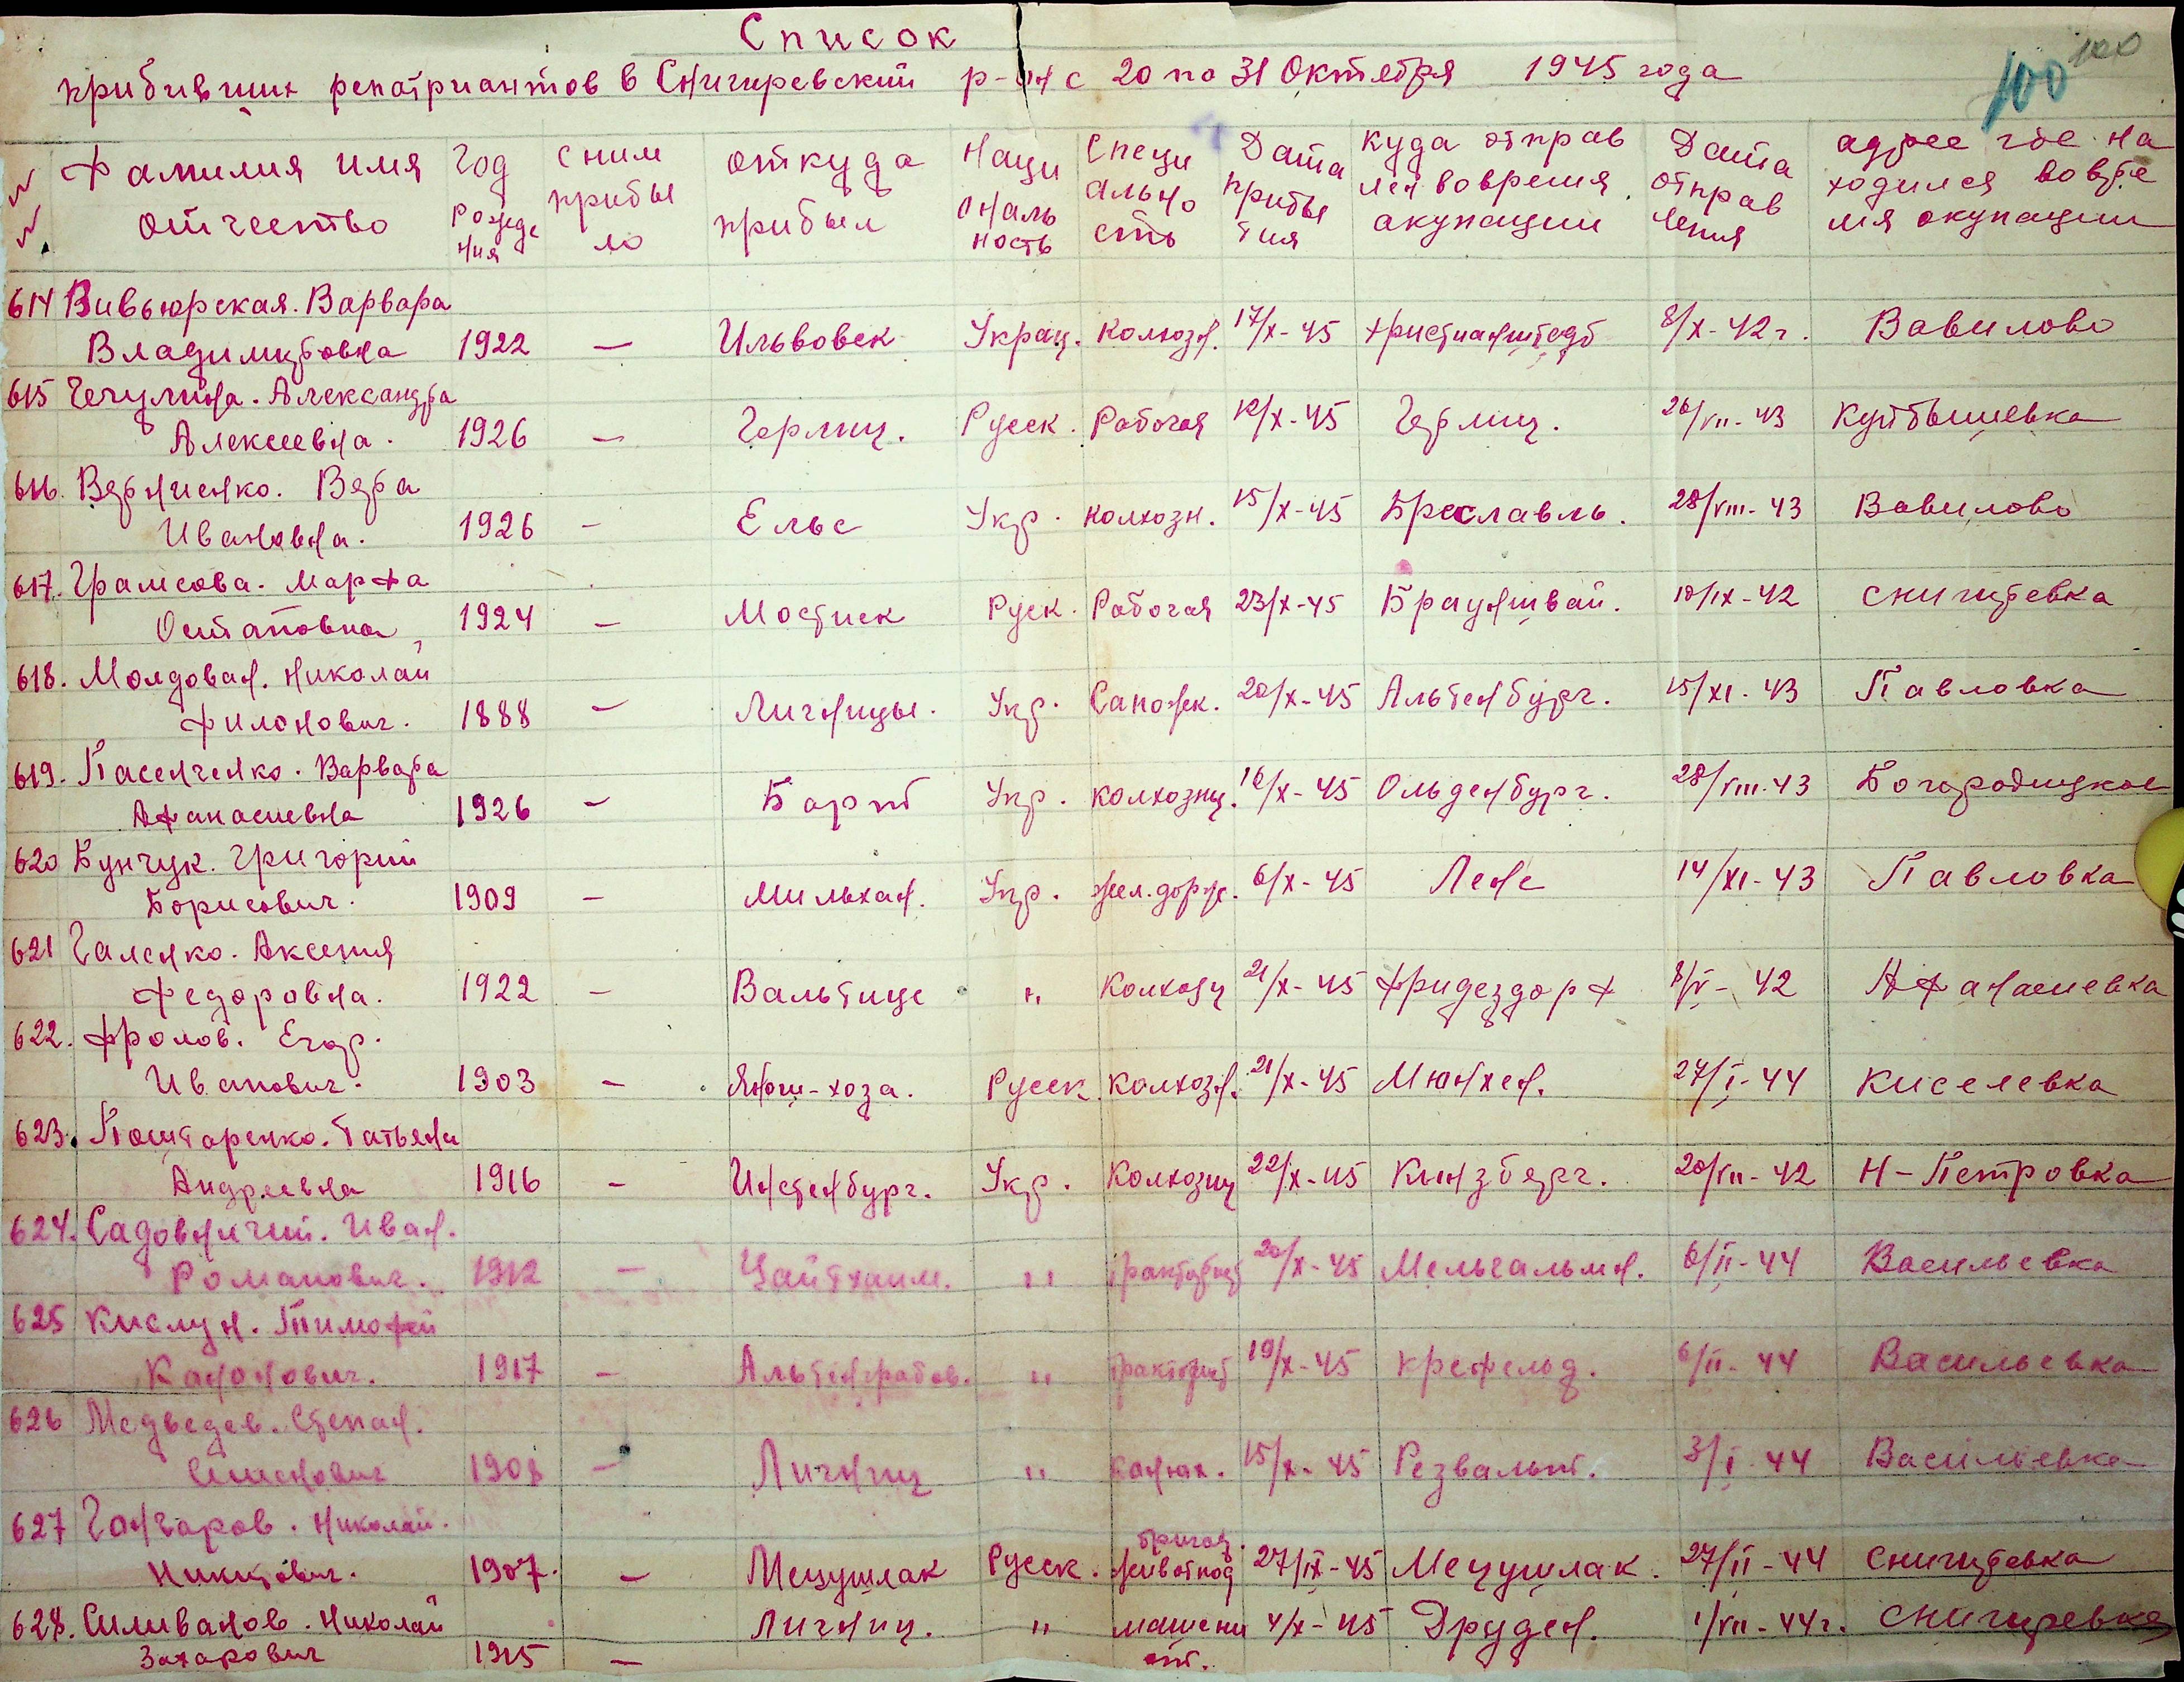 Список
прибивших репатриантов в Снигиревский р-он с 20 по 31 Октября 1945 года
100
100
№№ Фамилия имя отчество Год рождения с ним прибыло откуда прибыл Национальность Специальность Дата прибытия куда отправлен вовремя акупации Дата отправления адрес где находился вовремя окупации
614 Вивьюрская. Варвара
Владимировна 1922 — Ильвовек Украц. колхозн. 17/X-45 Христианштедт 8/X-42г. Вавилово
615 Чечулина. Александра
Алексеевна. 1926 — Герлиц. Русск. Рабочая 12/X-45 Герлиц. 26/VII-43 Куйбышевка
616. Верниенко. Вера
Ивановна. 1926 — Ельс Укр. колхозн. 15/X-45 Бреславль. 28/VIII-43 Вавилово
617. Грамсова. Марфа
Остаповна 1924 — Мостиск Руск. Рабочая 23/X-45 Брауншвай. 10/IX-42 Снигиревка
618. Молдован. Николай
Филонович. 1888 — Лигницы. Укр. Сапожн. 20/X-45 Альтенбург. 15/XI-43 Павловка
619. Пасенченко. Варвара
Афанасиевна 1926 — Барт Укр. колхозниц. 16/X-45 Ольденбург. 28/VIII-43 Богородицкое
620 Бунчук. Григорий
Борисович. 1909 — Мильхан. Укр. жел.дорж. 6/X-45 Ленс 14/XI-43 Павловка
621 Галенко. Аксения
Федоровна. 1922 — Вальтице " Колхозц 21/X-45 Фридездорф 8/V-42 Афанасиевка
622. Фролов. Егор.
Иванович. 1903 — Яной-хоза. Русск. колхозн. 21/X-45 Мюнхен. 27/I-44 Киселевка
623. Поштаренко. Татьяна
Андреевна 1916 — Инстенбург. Укр. Колхозниц 22/X-45 Кинзберг. 20/VII-42 Н-Петровка
624. Садовничий. Иван.
Романович. 1912 — Цайтхаим. " тракторист 20/X-45 Мельгальмн. 6/II-44 Васильевка
625 Кислун. Тимофей
Канонович. 1917 — Альтенграбов. " тракторист 19/X-45 Крефельд. 6/II-44 Васильевка
626 Медведев. Степан.
Семенович 1908 — Лигниц " конюх. 15/X-45 Резвальт. 3/I-44 Васильевка
627 Гончаров. Николай.
Никитович. 1907. — Мецушлак Русск. бригад. животнод 27/IX-45 Мецушлак. 27/II-44 Снигиревка
628. Силиванов. Николай
Захарович 1915 — Лигниц. " машенист. 4/X-45 Друден. 1/VII-44г. Снигиревка